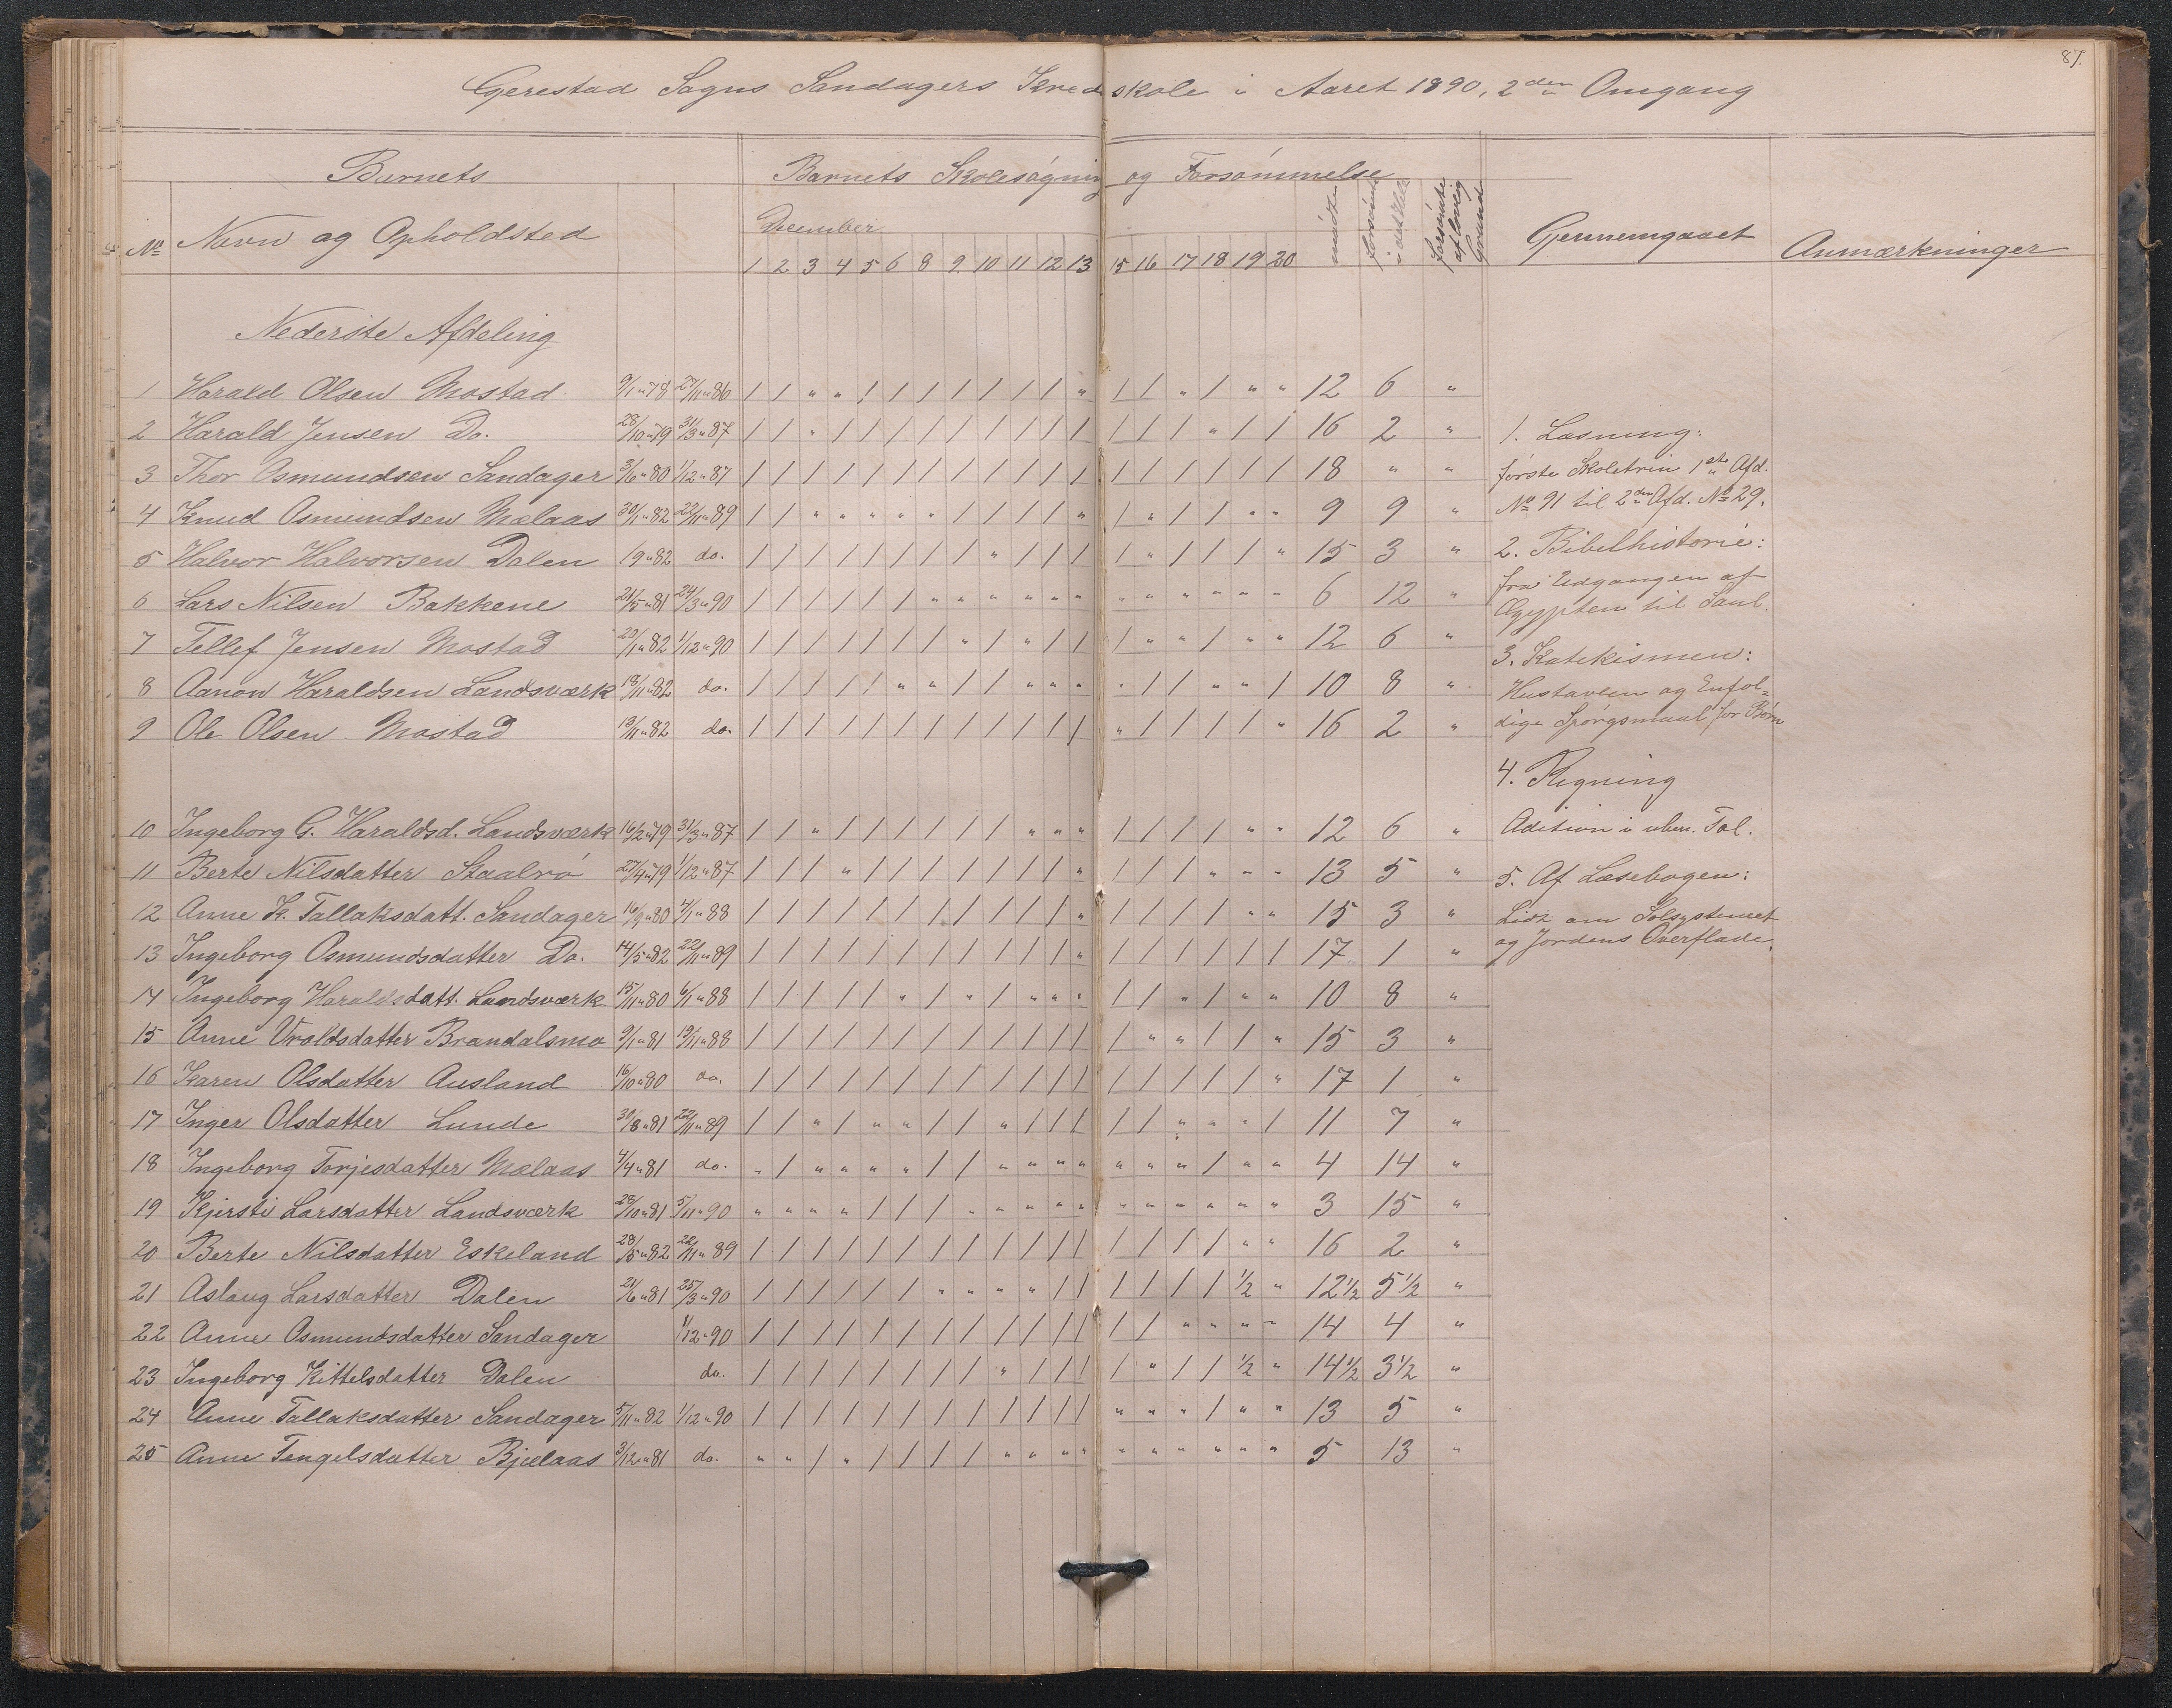 87.
Gjerestad Sogns Sandagers Kredsskole i Aaret 1890, 2den Omgang
Barnets Barnets Skolesøgning og Forsømmelse
No Navn og Opholdsted December mødte forsømte i det Hele forsømte af lovlig Grund Gjennemgaaet Anmærkninger
1 2 3 4 5 6 8 9 10 11 12 13 15 16 17 18 19 20
Nederste Afdeling
1 Harald Olsen Mostad 9/1 " 78 27/11 " 86 / / " " / / / / / / / " / / " / " " 12 6 "
2 Harald Jensen Do. 28/10 " 79 31/3 " 87 / / " / / / / / / / / / / / / " / / 16 2 "
3 Thor Osmundsen Sandager 3/6 " 80 1/12 " 87 / / / / / / / / / / / / / / / / / / 18 " "
4 Knud Osmundsen Mælaas 30/1 " 82 22/11 " 89 / / " " " " " / / / / " / " / / " " 9 9 "
5 Halvor Halvorsen Dalen 19 " 82 do. / / / / / / / / " / / / / " / / / " 15 3 "
6 Lars Nilsen Bakkene 21/5 " 81 24/3 " 90 / / / / / / " " " " " " " " " " " " 6 12 "
7 Tellef Jensen Mostad 20/1 " 82 1/12 " 90 / / / / / / / " / " / / / " " / " " 12 6 "
8 Aanon Haraldsen Landsværk 18/11 " 82 do. / / / / / " " / / " " " " / / " " / 10 8 "
9 Ole Olsen Mostad 19/11 " 82 do. / / / / / / / / / / / / " / / / / " 16 2 "
10 Ingeborg G. Haraldsd. Landsværk 16/2 " 79 31/3 " 87 / / " / / / / / / " " " / / / / " " 12 6 "
11 Berte Nilsdatter Staalrø 27/4 " 79 1/12 " 87 / / / " / / / / / / / " / / / " " " 13 5 "
12 Anne K. Tallaksdatt. Sandager 16/9 " 80 4/1 " 88 / / / / / / / / / / / " / / / / " " 15 3 "
13 Ingeborg Osmundsdatter Do. 14/5 " 82 22/11 " 89 / / / / / / / / / / / " / / / / / / 17 1 "
14 Ingeborg Haraldsdatt. Landsværk 15/11 " 80 6/11 " 88 / / / / / " / " / " " " / / " / " " 10 8 "
15 Anne Vroldsdatter Brandalsmo 9/1 " 81 19/11 " 88 / / / / / / / / / / / / / " " / / " 15 3 "
16 Karen Olsdatter Ausland 16/10 " 80 do. / / / / / / / / / / / / / / / / / " 17 1 "
17 Inger Olsdatter Lunde 30/8 " 81 22/11 " 89 / / " / " " / / " / / / / / " " " / 11 7 "
18 Ingeborg Torjesdatter Mælaas 4/4 " 81 do. " / " " " " / / " " " " " " " / " " 4 14 "
19 Kjersti Larsdatter Landsværk 28/10 " 81 5/11 " 90 " " " " / / / " " " " " " " " " " " 3 15 "
20 Berte Nilsdatter Eskeland 28/5 " 82 22/11 " 89 / / / / / / / / / / / / / / / / " " 16 2 "
21 Aslaug Larsdatter Dalen 21/6 " 81 25/3 " 90 / / / / / / " " " " / / / / / / 1/2 " 12 1/2 5 1/2 "
22 Anne Osmundsdatter Sandager 1/12 " 90 / / / / / / / / / / / / / / " " " " 14 4 "
23 Ingeborg Kittelsdatter Dalen do. / / / / / / / / " / / / / " / / 1/2 " 14 1/2 3 1/2 "
24 Anne Tallaksdatter Sandager 5/11 " 82 1/12 " 90 / / / / / / / / / / / / " " " / " " 13 5 "
25 Anne Tengelsdatter Bjelaas 3/12 " 81 do. " " / " / / / / " " " " " " " " " " 5 13 "
1. Læsning:
første Skoletrin 1ste Afd.
No 91 til 2den Afd. No 29.
2. Bibelhistorie:
fra Udgangen af
Ægypten til Saul.
3. Katekismen:
Hustavlen og Enfol=
dige Spørgsmaal for Børn
4. Regning
Adition i uben. Tal.
5. Af Læsebogen:
Lidt om Solsystemet
og Jordens Overflade.